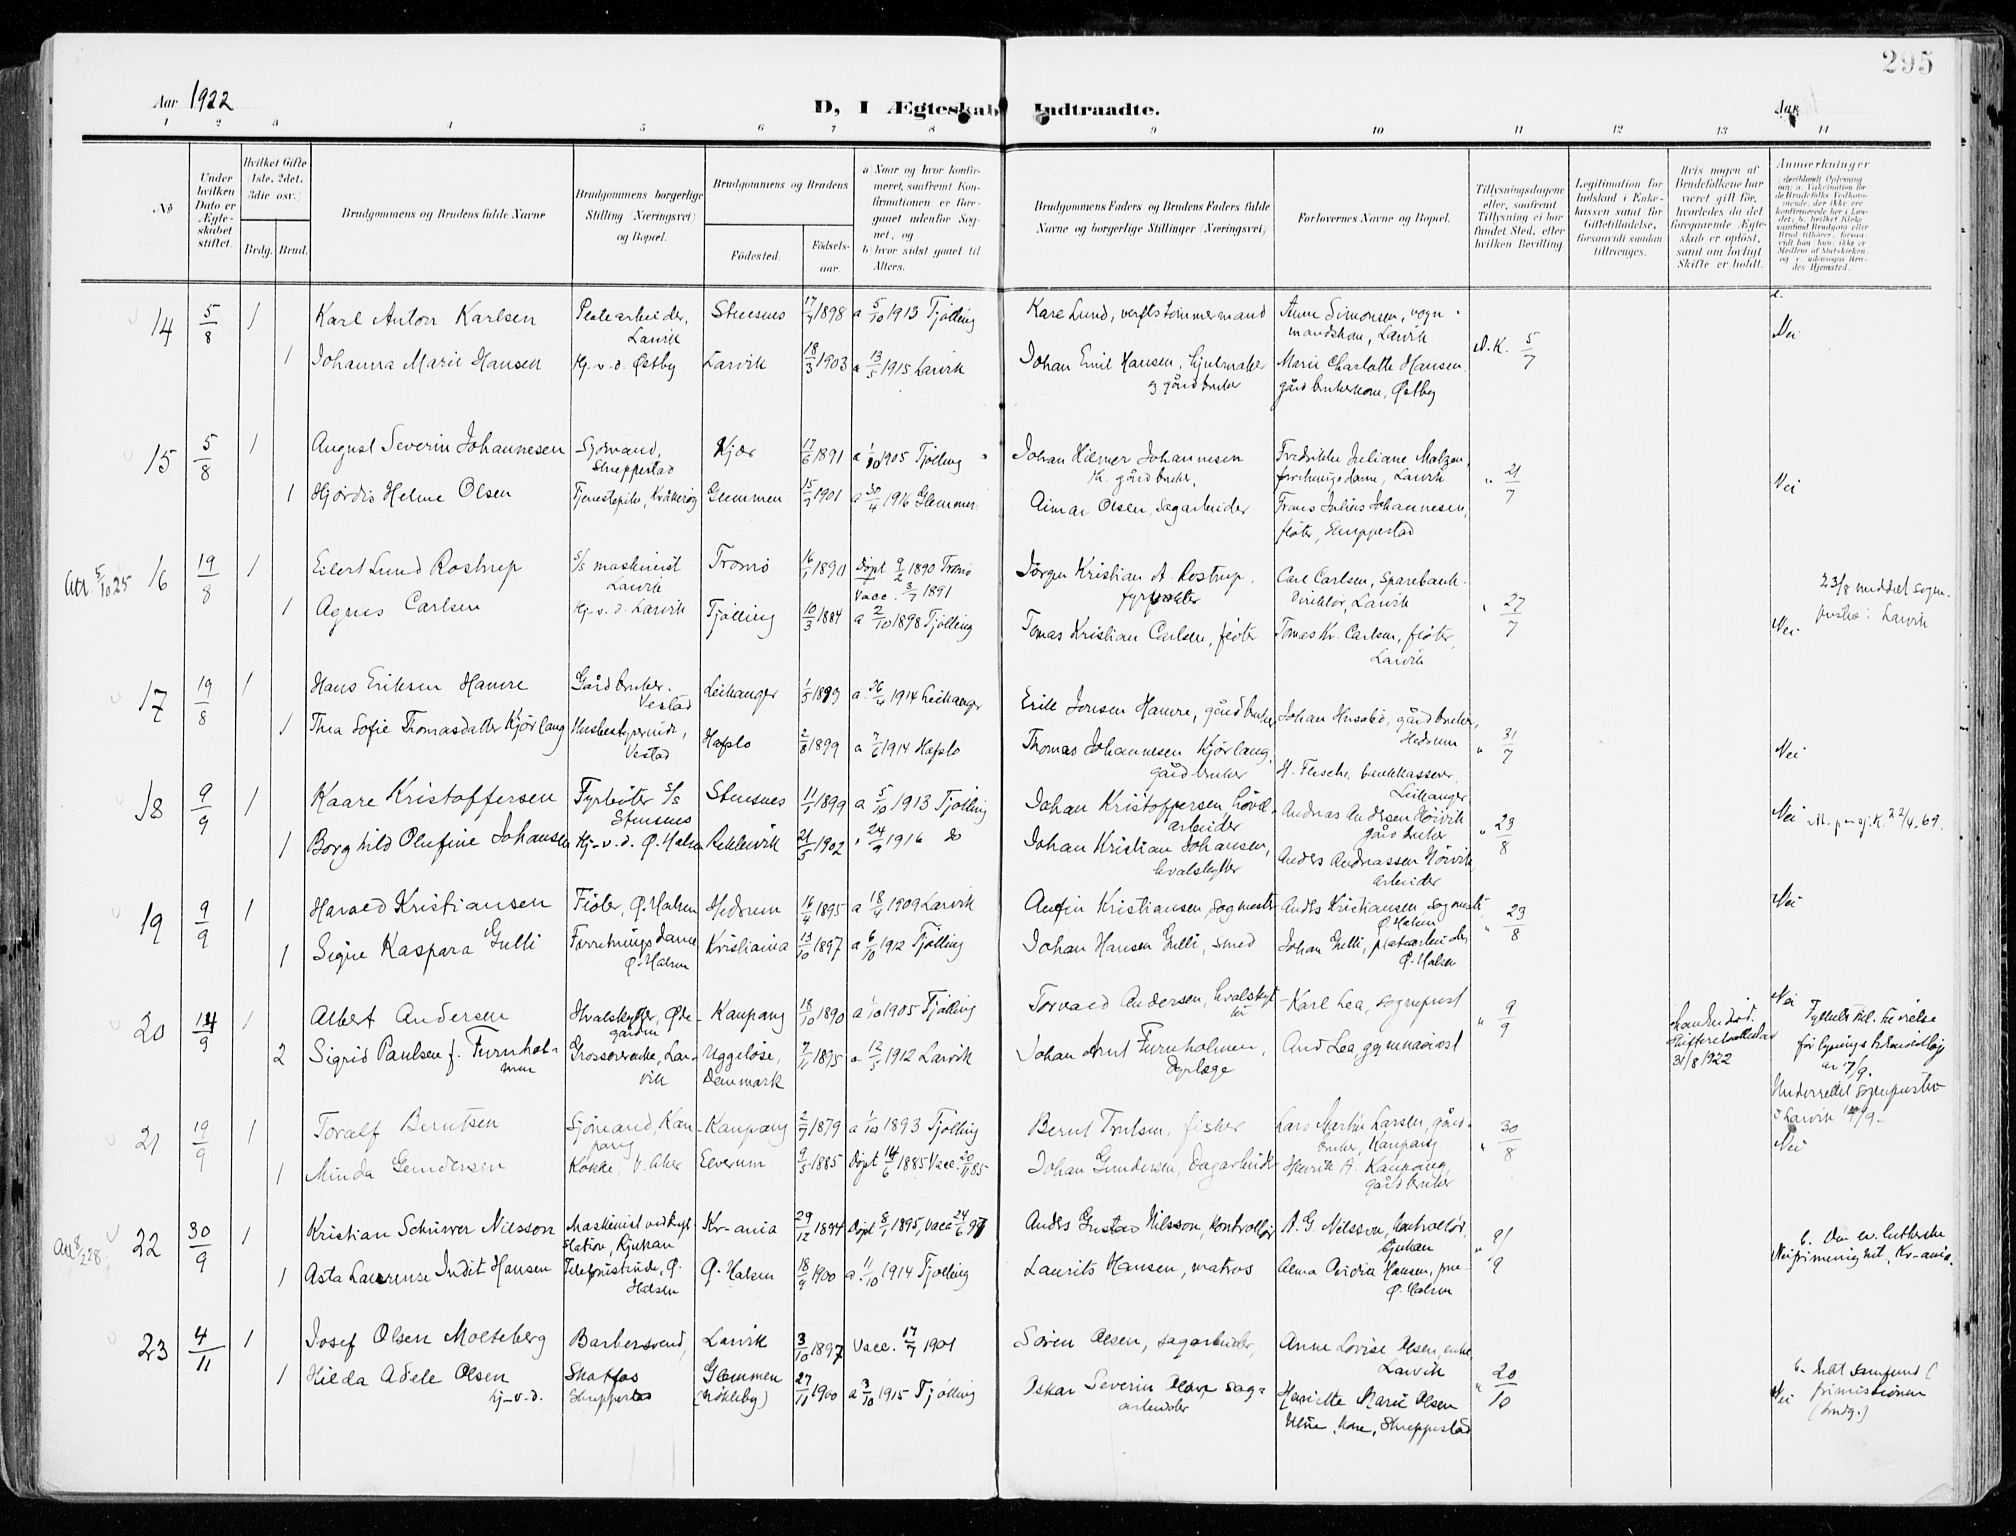 295
Aar 1922
D, I Ægteskab Indtraadte.
Aar
1 2 3 4 5 6 7 8 9 10 11 12 13 14
No
Under hvilken Dato er Ægteskabet stiftet.
Hvilket Gifte (1ste, 2det, 3die osv.)
Brdg. Brud.
Brudgommens og Brudens fulde Navne
Brudgommens borgerlige Stilling (Næringsvei) og Bopæl.
Brudgommens og Brudens
Fødested.
Fødselsaar.
a) Naar og hvor konfirmeret, saafremt Konfirmationen er foregaaet udenfor Sognet, og
b) hvor sidst gaaet til Alters.
Brudgommens Faders og Brudens Faders fulde Navne og borgerlige Stillinger (Næringsvei)
Forlovernes Navne og Bopæl.
Tillysningsdagene eller, saafremt Tillysning ei har fundet Sted, efter hvilken Bevilling.
Legitimation for Indskud i Enkekassen samt for Giftetilladelse, forsaavidt saadan tiltrænges.
Hvis nogen af Brudefolkene har været gift før, hvorledes da det foregaaende Ægteskab er opløst, samt om lovligt Skifte er holdt.
Anmerkninger
14 5/8 1 Karl Anton Karlsen Platearbeider, Larvik Stensnes 17/7 1898 a 5/10 1913 Tjølling
Kare Lund, verftstømmermand Anne Simonsen, vognmandskone, Larvik Nei
1 Johanna Marie Hansen Hj.v.d. Østby Larvik 18/3 1903 a 13/5 1915 Larvik
Johan Emil Hansen, hjulmaker og gårdbruker Marie Charlotte Hansen, gårdbrukerkone, Østby N.K. 5/7
15 5/8 1 August Severin Johannesen Sjømand, Skreppestad Kjær 17/6 1891 a 1/10 1905 Tjølling
Johan Hilmer Johannesen gårdbruker, Fredrikke Juliane Malzen, Larvik " 21/7 Nei
1 Hjørdis Helene Olsen Tjenestepike, Kråkerøy Glemmen 15/9 1901 a 30/4 1916 Glemmen
Aimar Olsen, sagarbeider Frans Julius Johannesen, fløter, Skreppestad
16 19/8 1 Eilert Lund Rostrup s/s maskinist Larvik Tromø 16/1 1890 Døpt 9/2 1890 Tromø Vacc. 3/7 1891
Jørgen Kristian A. Rostrup, fyrvokter Carl Carlsen, Sparebankdirektør, Larvik " 27/7 23/8 meddelt sogneprest i Larvik
Att. 5/10 25
1 Agnes Carlsen Hj.v.d. Larvik Tjølling 10/3 1884 a 2/10 1898 Tjølling
Tomas Kristian Carlsen, fløter Tomas Kr. Carlsen, fløter, Larvik Nei
17 19/8 1 Hans Eriksen Hamre Gårdbruker, Vestad Leikanger 1/5 1893 a. 26/4 1914 Leikanger
Erik Jonsen Hamre, gårdbruker Johan Husabø, gårdbruker, Hedrum " 31/7 Nei
1 Thea Sofie Thomasdatter Kjørlaug Husbestyrerinde, Vestad Hafslo 2/8 1899 a 7/6 1914 Hafslo
Thomas Johannesen Kjørlaug, gårdbruker H. Flesche, bankkasserer, Leikanger
18 9/9 1 Kaare Kristoffersen Fyrbøter s/s Stensnes Stensnes 11/1 1899 a 5/10 1913 Tjølling
Johan Kristoffersen, arbeider Andreas Andersen Høivik gårdbruker " 23/8 Nei 22/4.69.
1 Borghild Olufine Johansen Hj.-v.d. Ø. Halsen Rekkevik 21/5 1902 " 24/9 1916 do
Johan Kristian Johansen, hvalskytter Anders Andreassen Høivik, arbeider
19 9/9 1 Harald Kristiansen Fløter, Ø. Halsen Hedrum 16/4 1895 a 18/4 1909 Larvik
Anfin Kristiansen, sagmester Anders Kristiansen, sagmester, Ø. Halsen " 23/8 Nei
1 Signe Kaspara Gulli Forretningsdame Ø. Halsen Kristiania 13/10 1897 a 6/10 1912 Tjølling
Johan Hansen Gulli, smed Johan Gulli, platearbeider Ø. Halsen
20 14/9 1 Albert Andersen Hvalskytter, Ødegården Kaupang 18/10 1890 a 1/10 1905 Tjølling
Torvald Andersen, hvalskytter Karl Lea, sogneprest " 9/9 Nei
2 Sigrid Paulsen f. Furuholmen Grossererenke, Larvik Uggeløse, Denmark 7/11 1895 a 12/5 1912 Larvik
Johan Arnt Furuholmen, Dyrlæge Aud Lea, gymnasiast
31/8 1922
Underrettet sogneprest i Larvik 14/9.
21 19/9 1 Toralf Berntsen Sjømand, Kaupang Kaupang 2/7 1879 a 1/10 1893 Tjølling
Bernt Trulsen, fisker Lars Martin Larsen, gårdbruker, Kaupang " 30/8 Nei
1 Minda Gundersen Kokke, V. Aker Elverum 9/5 1885 Døpt 14/6 1885 Vacc. 20/11 85
Johan Gundersen, Dagarbeider Henrik A. Kaupang, gårdbruker
22 30/9 1 Kristian Schirwer Nilsson Maskinist ved kraftstation, Rjukan Kr-ania 29/12 1894 Døpt 8/1 1895, Vacc 24/6 97
Anders Gustav Nilsson, kontrollør A. G. Nilsson, kontrollør, Rjukan " 9/9 b. Den ev. lutherske frimenighet, Kr-ania.
1 Asta Laurense Indit Hansen Telefonistinde, Ø. Halsen Ø. Halsen 18/9 1900 a. 11/10 1914 Tjølling
Laurits Hansen, matros Alma Ovidia Hansen, frue Ø. Halsen Nei
23 4/11 1 Josef Olsen Molteberg Barbersvend, Larvik 3/10 1897 Vacc. 17/7 1901
Søren Olsen, sagarbeider, Anne Lovise Olsen, enke Larvik " 20/10
1 Hilda Adele Olsen hj-v.d. Skotfos Skreppestad Glemmen (Nøkleby) 27/11 1900 a 3/10 1915 Tjølling
Oskar Severin Olsen sagarbeider Henriette Marie Olsen Uline, kone, Skreppestad Nei (brudg.)